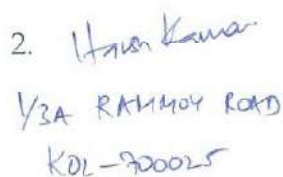 2. Harsh Kumar
1/3A RAMMOY ROAD
KOL-700025